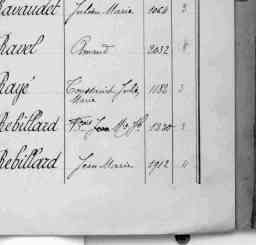 Ravaudet Julien Marie 1064 3
Ravel Armand 2032 8
Rayé Constant Jules 1182 3
Marie
Rebillard Fçois Jean Mie Jh 1320 3
Rebillard Jean Marie 1912 11